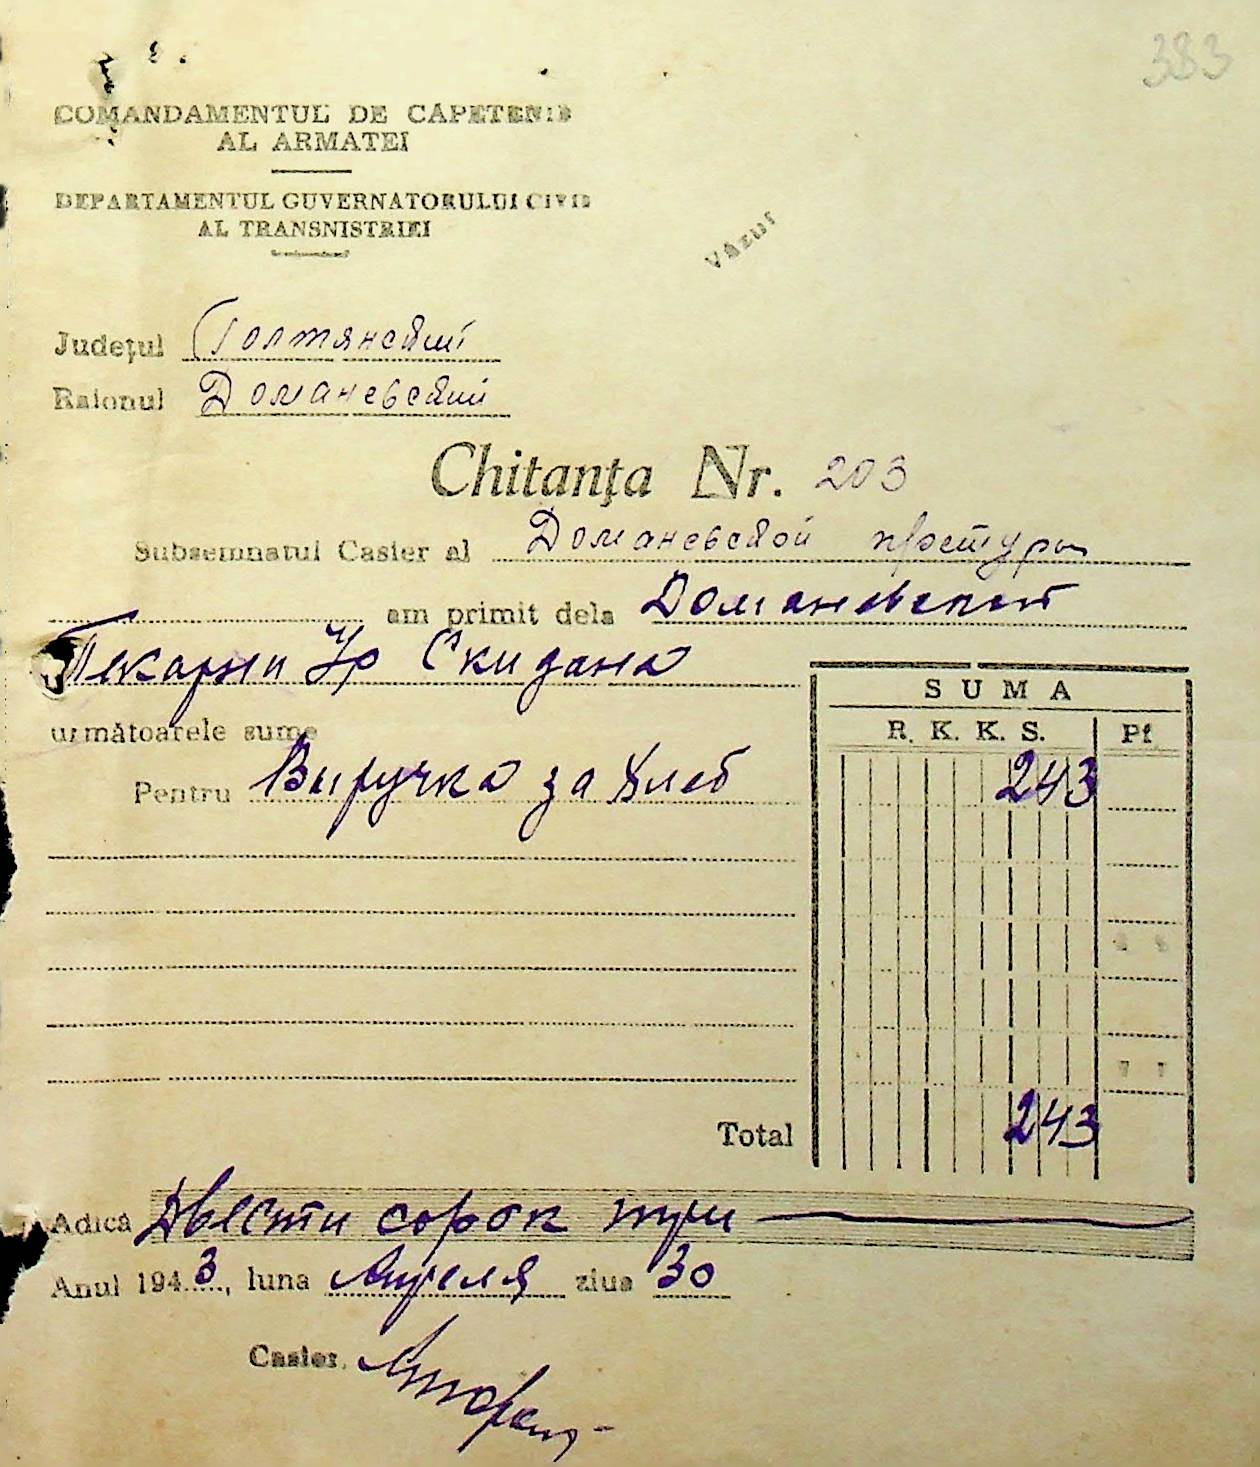 383
COMANDAMENTUL DE CAPETENIE
AL ARMATEI
DEPARTAMENTUL GUVERNATORULUI CIVIL
AL TRANSNISTRIEI
Văzut
Județul Голтянский
Raionul Доманевский
Chitanța Nr. 203
Subsemnatul Casier al Доманевской претуры
am primit dela Доманевской
Пекарни Скидана
următoarele sume
Pentru Выручка за хлеб
SUMA
R. K. K. S. Pf.
243
Total 243
Adică Двести сорок три
Anul 1943, luna Апреля ziua 30
Casier,